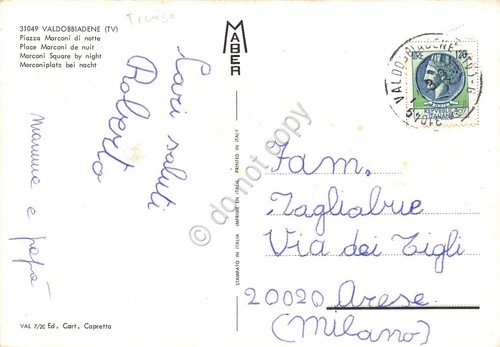 31049 VALDOBBIADENE (TV)
Piazza Marconi di notte
Place Marconi de nuit
Marconi Square by night
Marconiplatz bei nacht
MABER
Cari saluti
Roberto
mamma e papà
VAL 7/20 Ed. Cart. Capretta
STAMPATO IN ITALIA IMPRIMÉ EN ITALIE PRINTED IN ITALY
do not copy
VALDOBBIADENE (TV)
31049
Fam.
Tagliabue
Via dei Tigli
20020 Arese
(Milano)